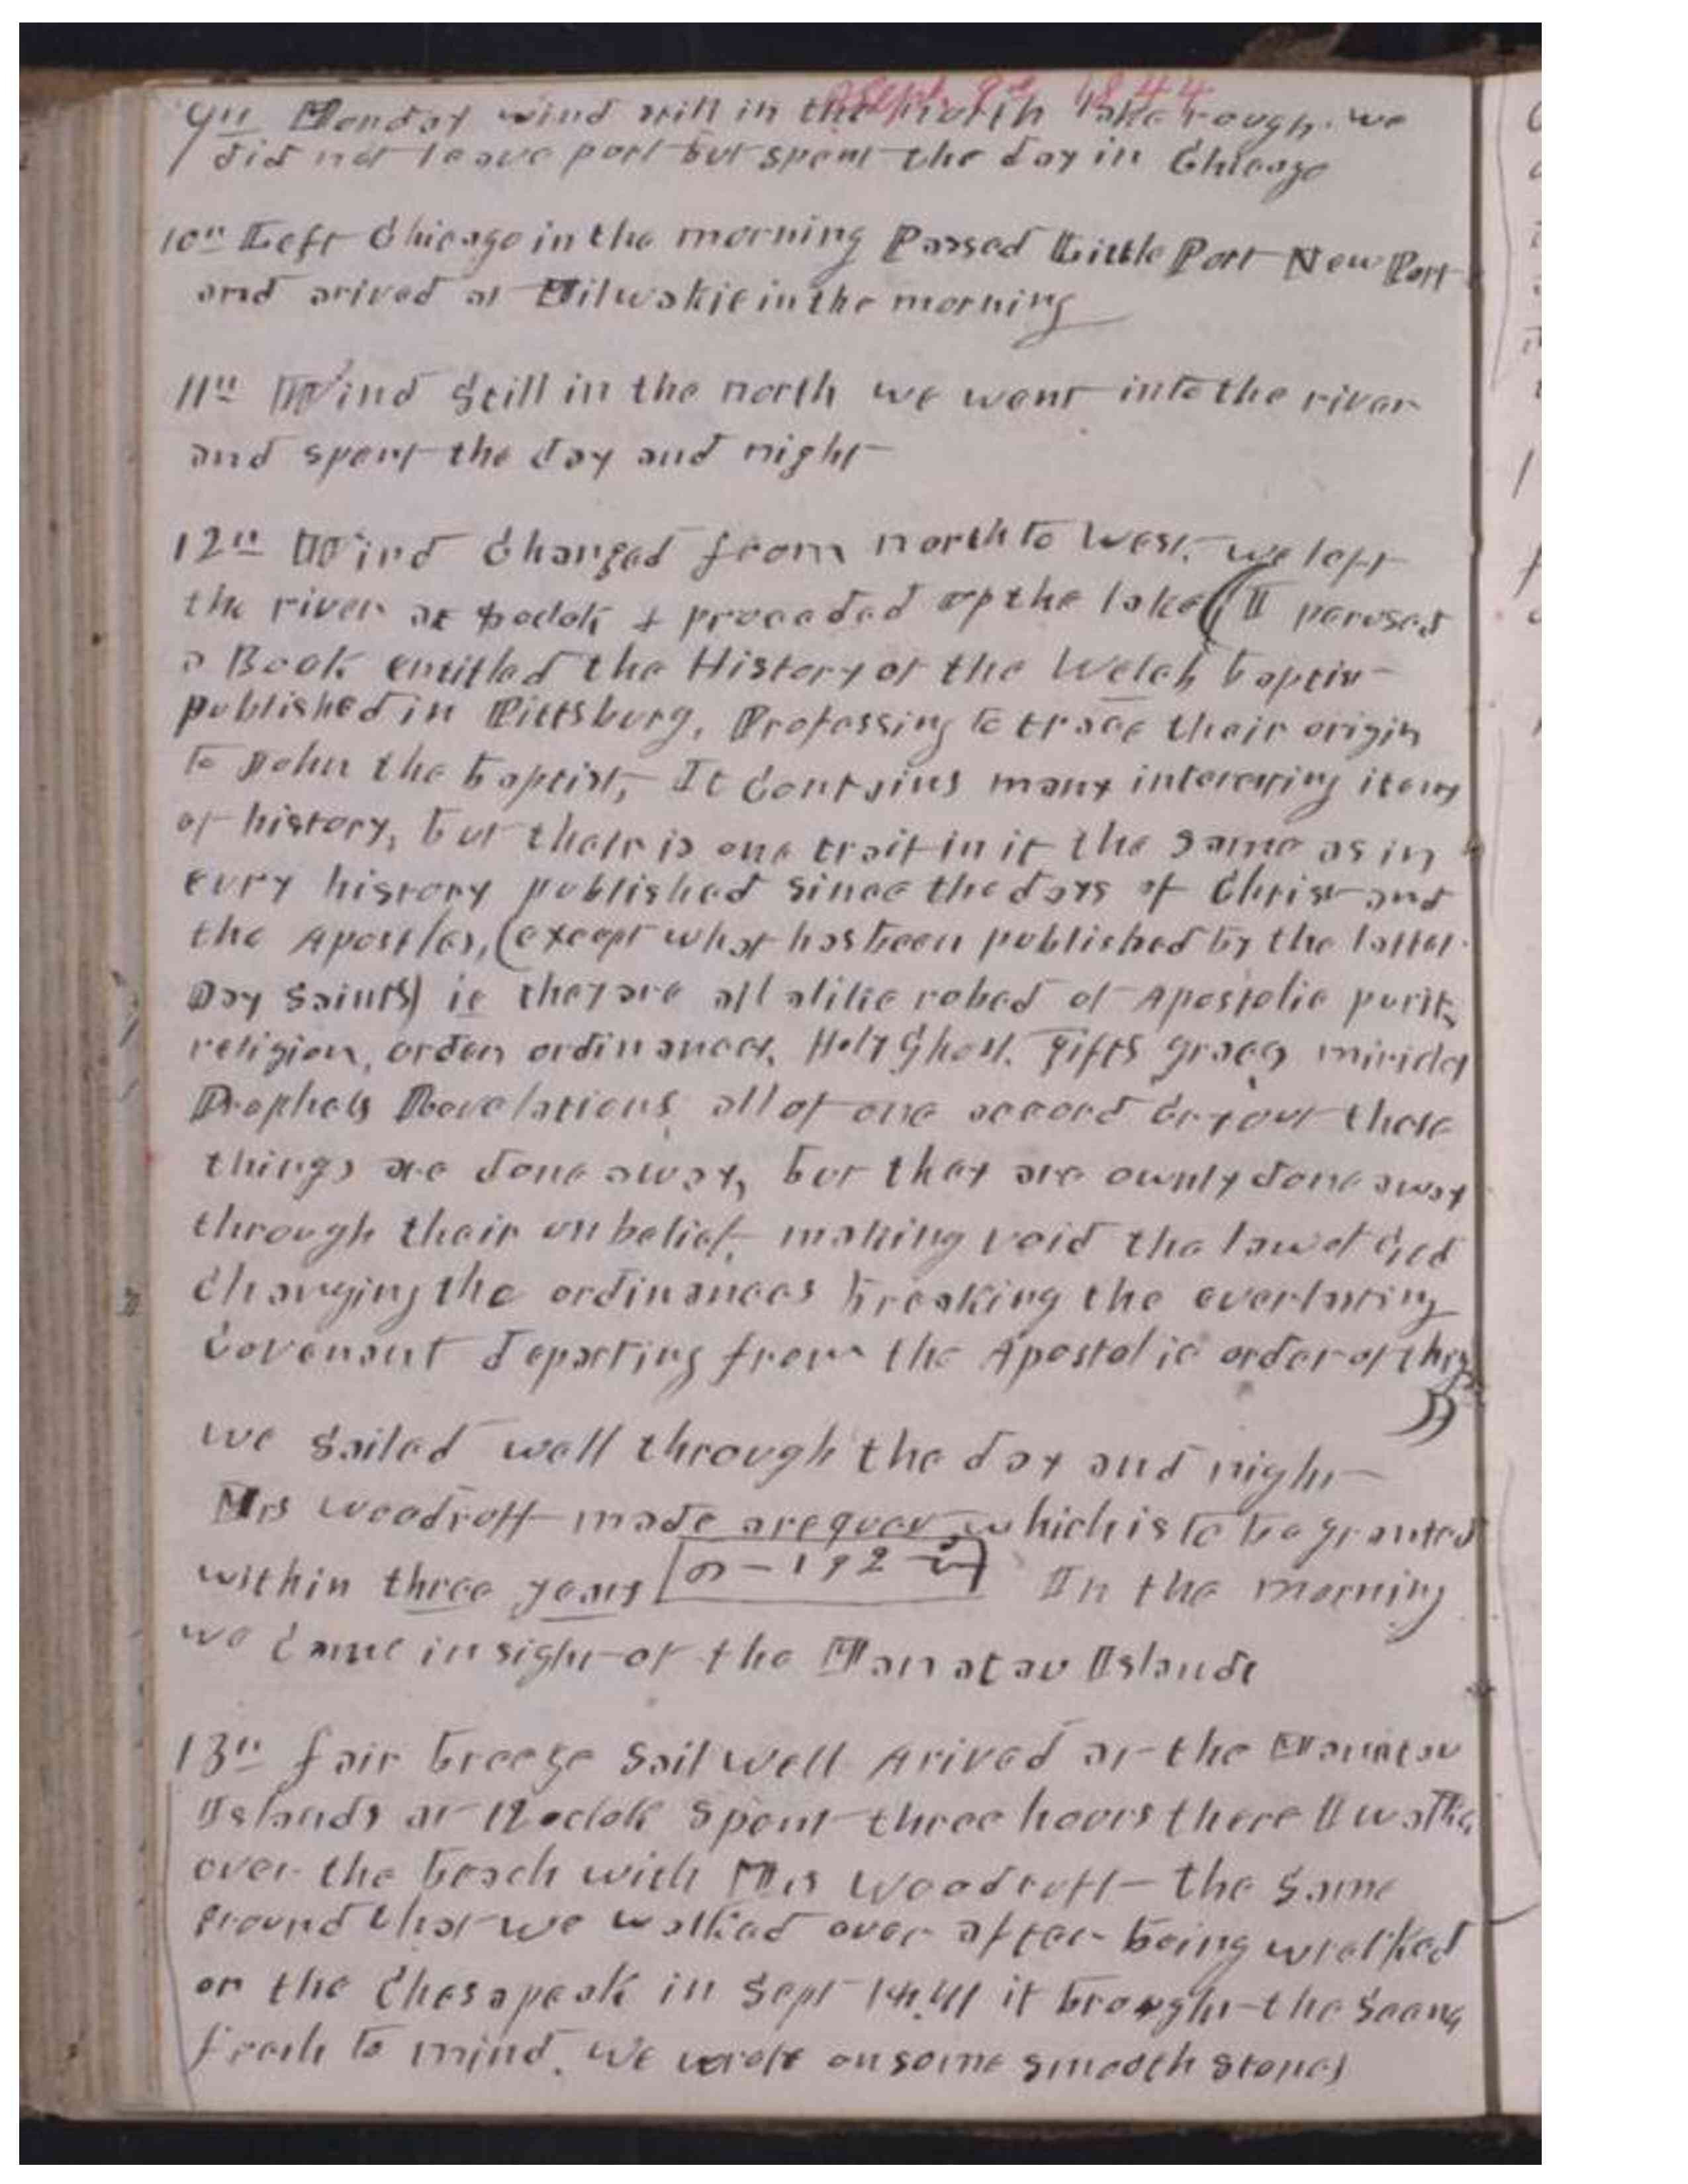 Sept. 9th 1844
9th Monday wind still in the north lake rough. we
did not leave port but spent the day in Chicago
10th Left Chicago in the morning Passed Little Port New Port
and arived at Milwakie in the morning
11th Wind Still in the north we went into the river
and spent the day and night
12th Wind Changed from north to West. we left
the river at oclok & proceded up the lake (I perused
a Book entitled the History of the Welch baptis
published in Pittsburg, Professing to trace their origin
to John the baptist, It Contains many interesting items
of history, but their is one trait in it the Same as in
evry history published Since the days of Christ and
the Apostles, (except what has been published by the latter
Day Saints) ie they are all alike robed of Apostolic purity
religion, order ordinances, Holy Ghost. gifts graces miricles
Prophets Revelations all of one accord Cry out these
things are done away, but they are ownly done away
through their unbelief, making void the law of God
Changing the ordinances breaking the everlasting
Covenant departing from the Apostolic order of things
))
we Sailed well through the day and night
Mrs Woodruff made a request which is to be granted
within three years In the morning
we Came in sight of the Manatau Islands
13th fair breeze Sail well Arived at the Manatau
Islands at 12 oclok Spent three hours there I walked
over the beach with Mrs Woodruff the Same
ground that we walked over after being wrecked
on the Chesapeak in Sept 1841 it brought the Seene
fresh to mind. we wrote on some smooth stones